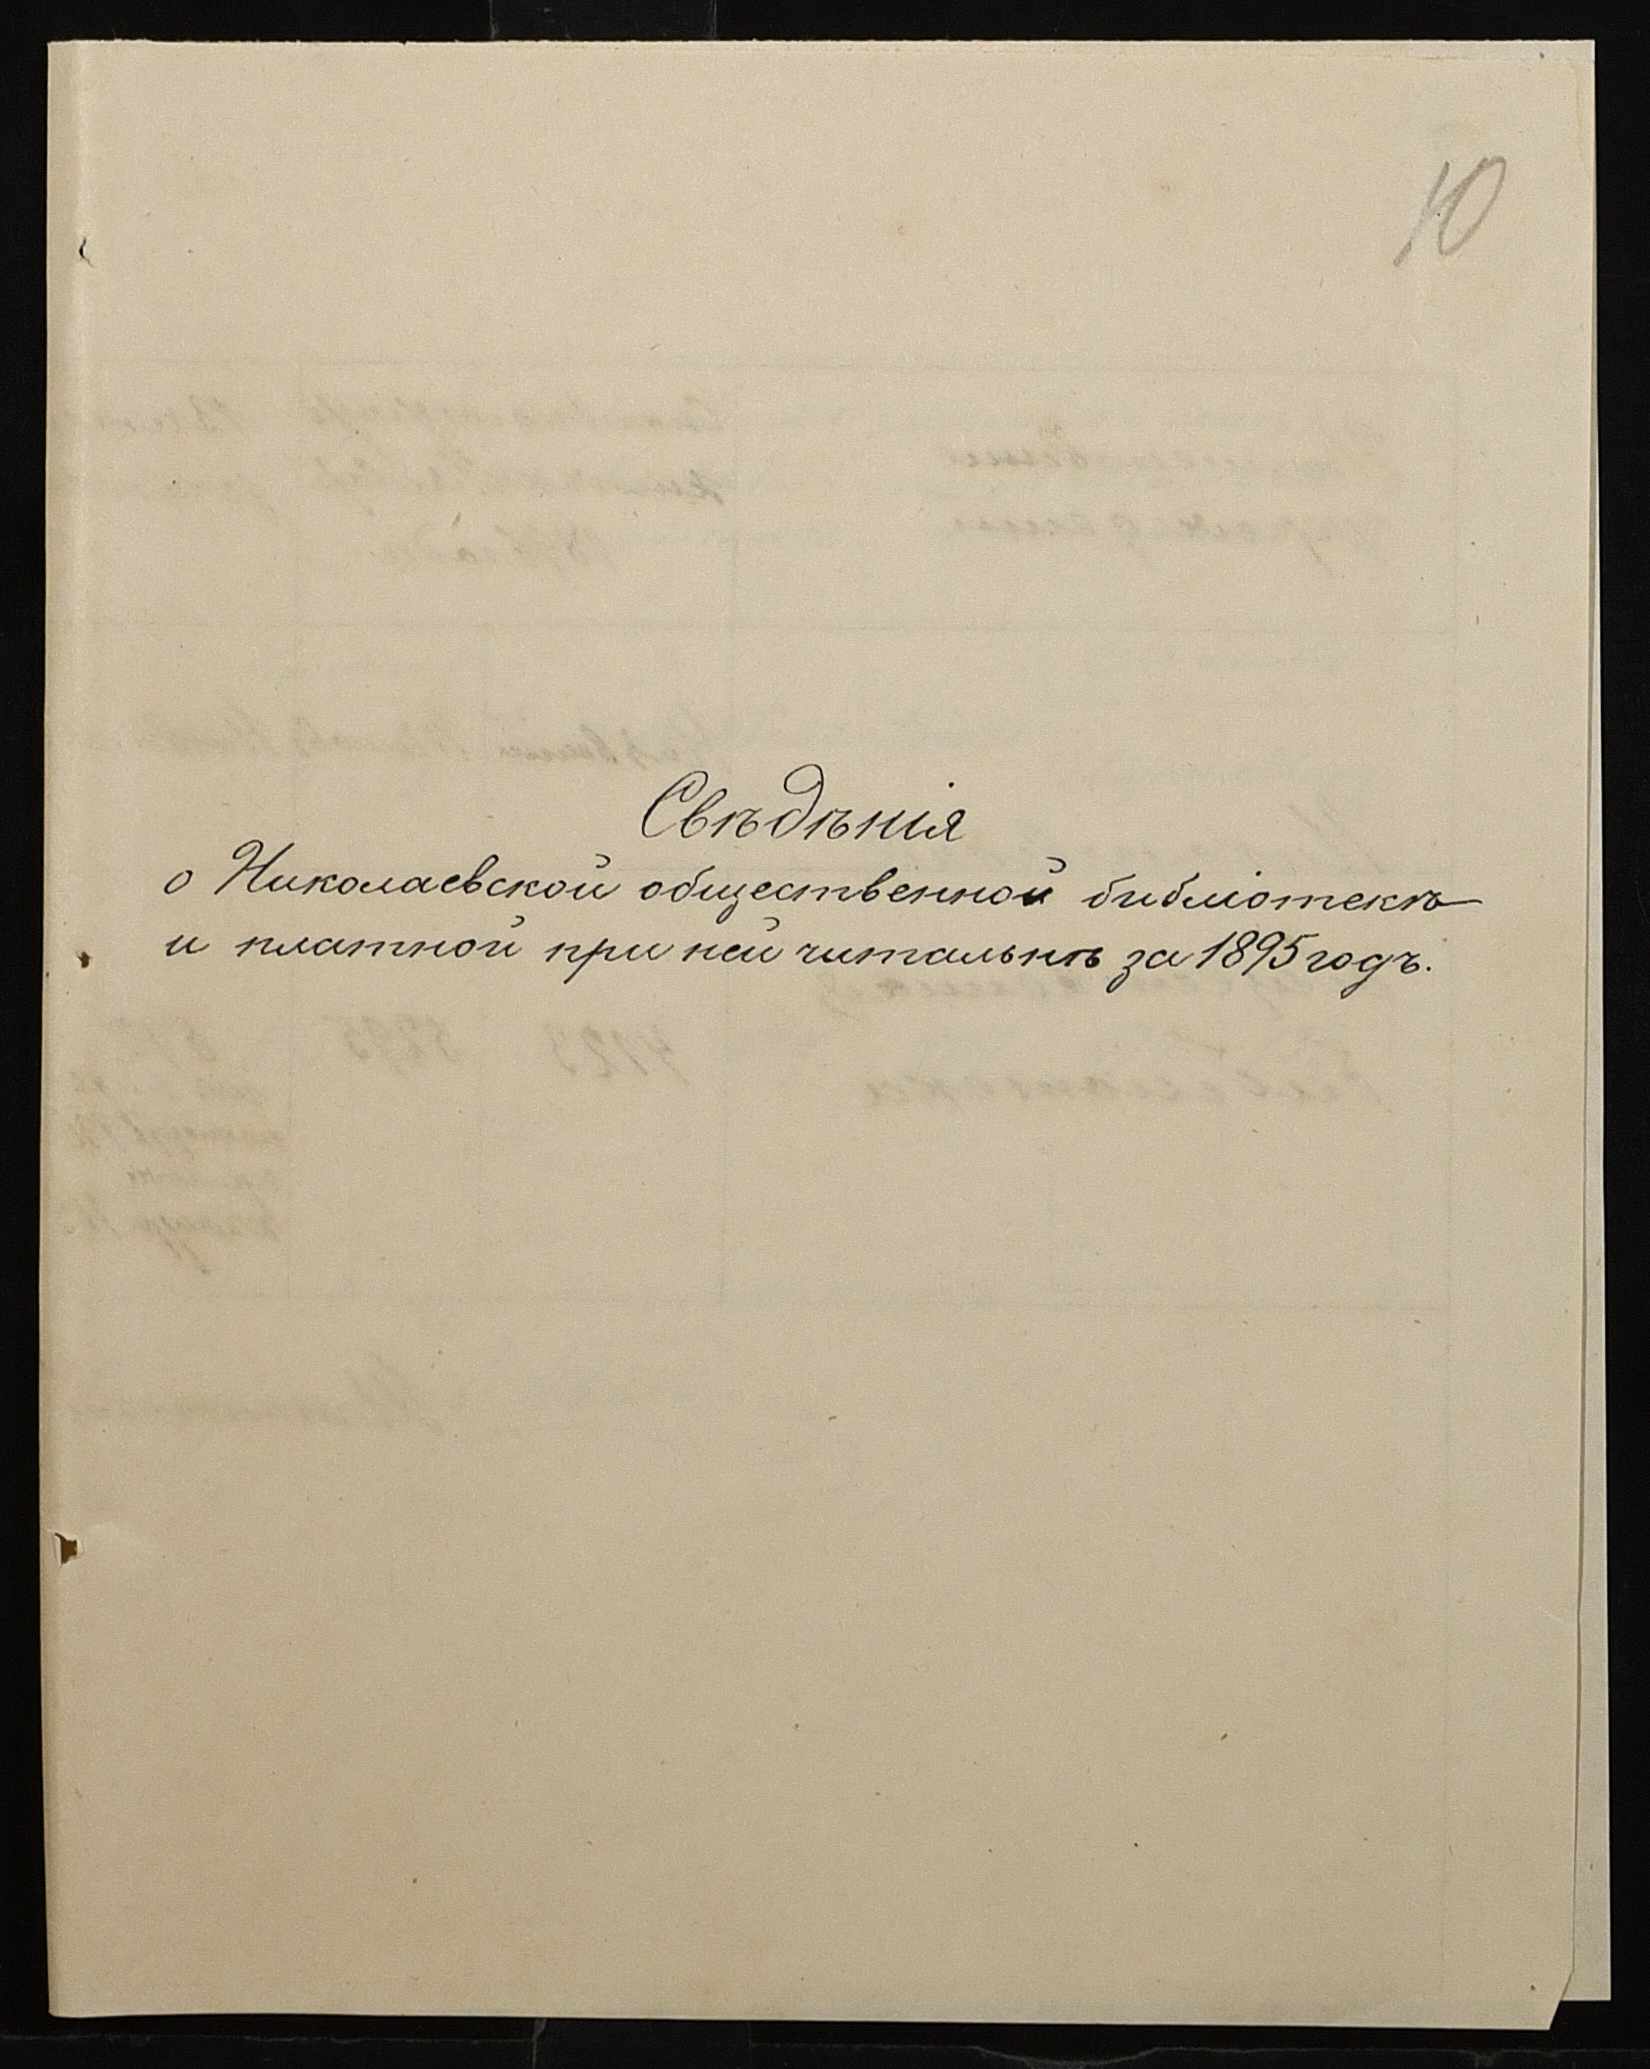 10
Свѣдѣнія
о Николаевской общественной библіотекѣ
и платной при ней читальнѣ за 1895 годъ.